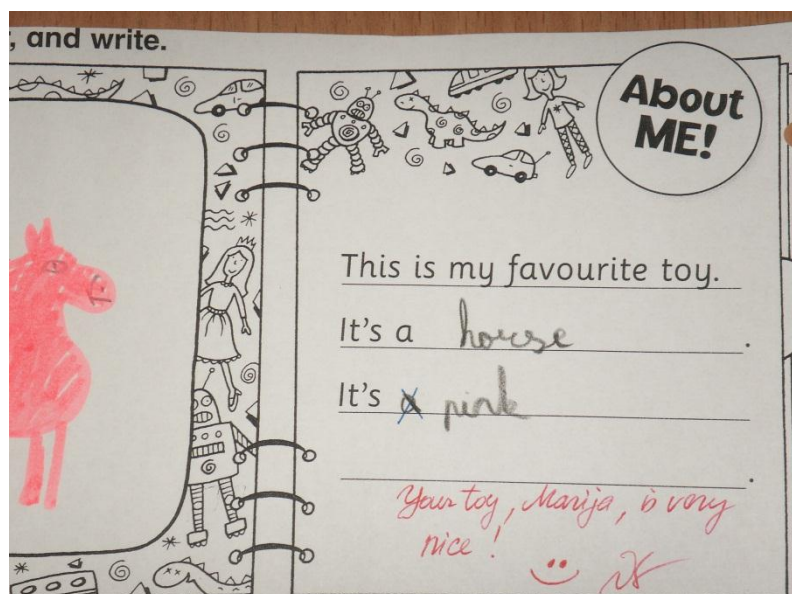 , and write.
About
ME!
This is my favourite toy.
It's a horse.
It's a pink
.
Your toy, Marija, is very
nice!